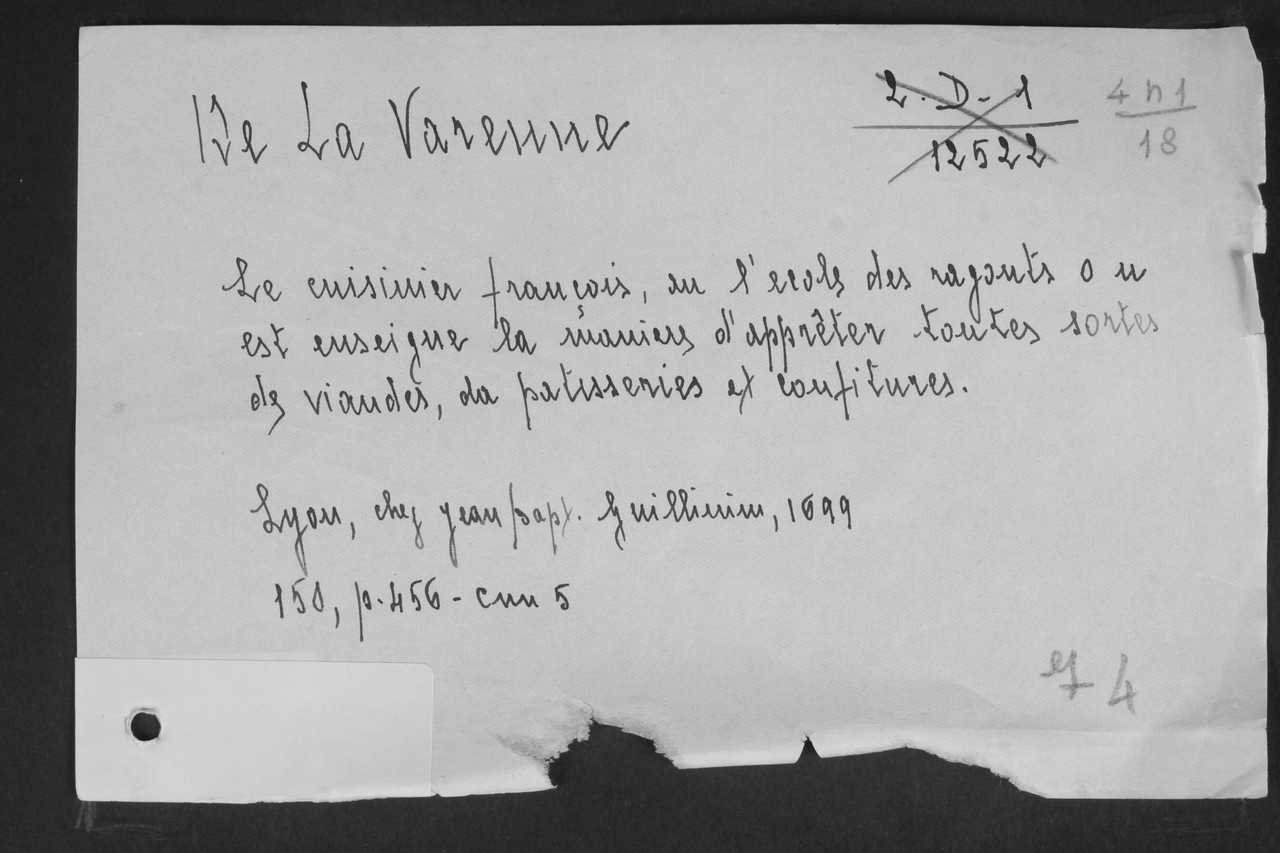 De La Varenne
2. D - 1
12522
4 h 1
18
Le cuisinier françois, ou l'ecole des ragouts o u
est enseigne la maniere d'apprêter toutes sortes
de viandes, da patisseries et confitures.
Lyon, chez Jean Bapt. Guillimin, 1699
150, p. 456 - cm 5
4